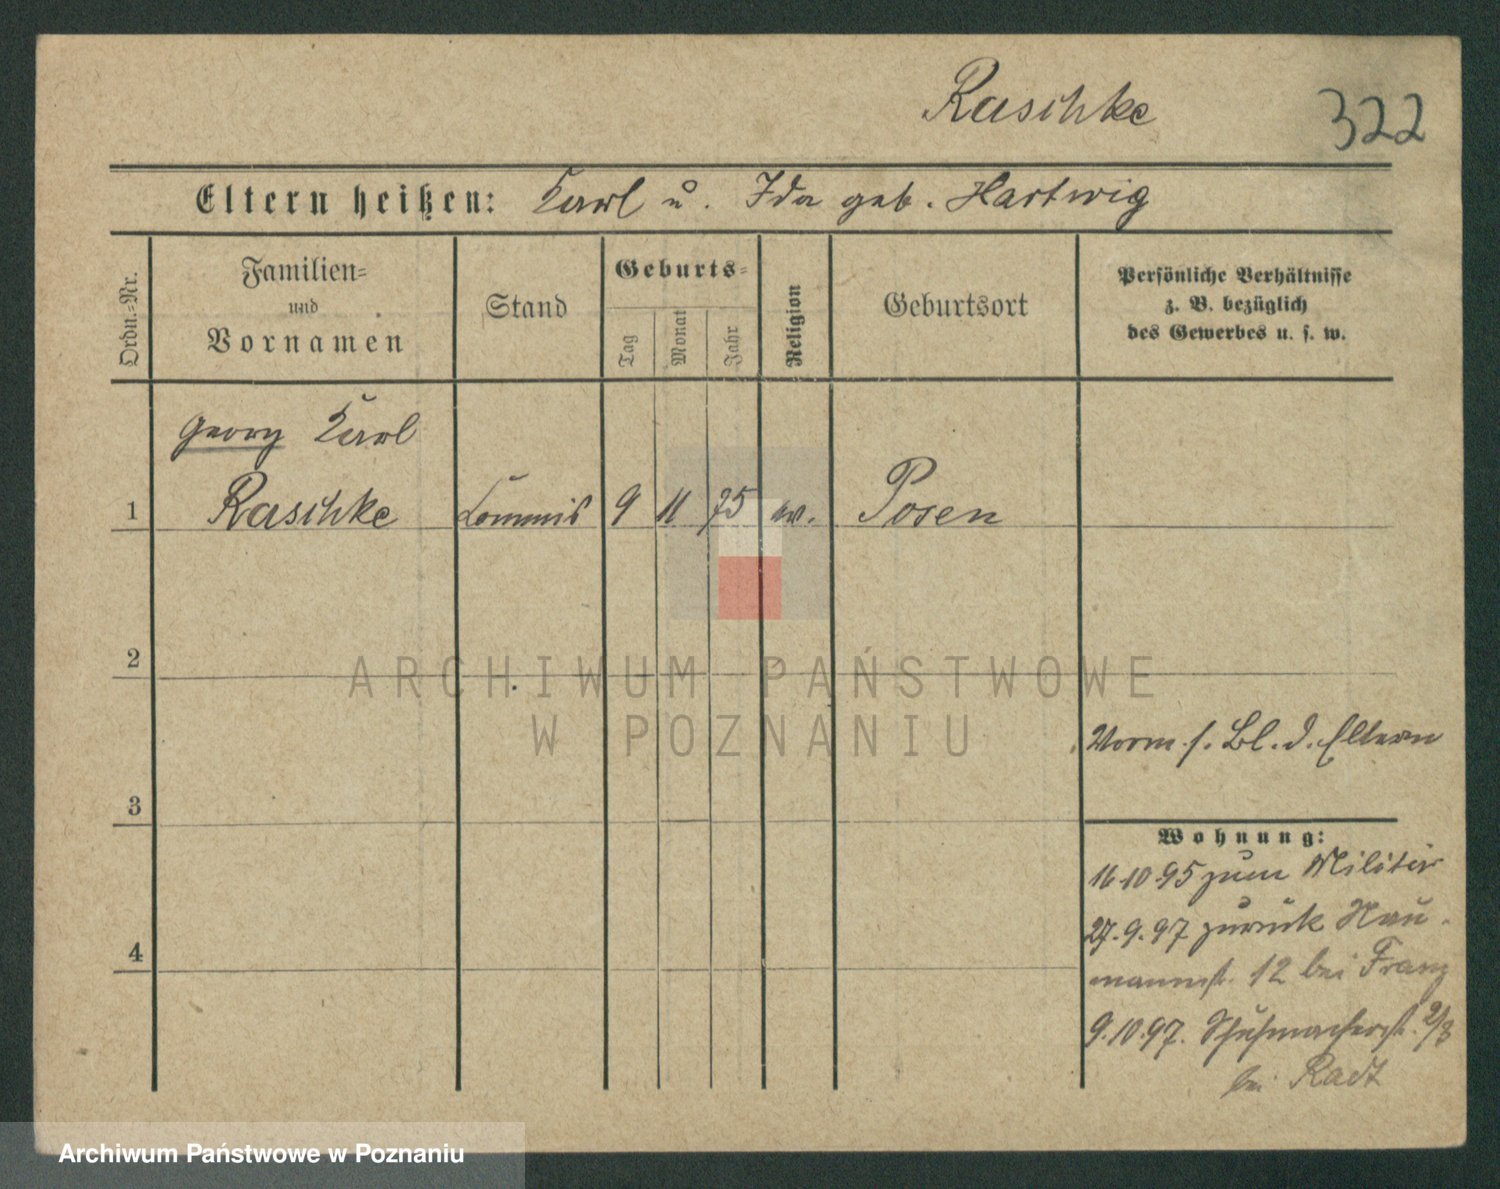 Raschke
322
Eltern heißen: Karl u. Ida geb. Hartwig
Ordn.=Nr.
Familien=
und
Vornamen
Stand
Geburts=
Tag
Monat
Jahr
Religion
Geburtsort
Persönliche Verhältnisse
z. B. bezüglich
des Gewerbes u. s. w.
Georg Karl
1 Raschke Commis 9 11 75 ev. Posen
2
ARCHIWUM PAŃSTWOWE
W POZNANIU
Vorm. s. Bl. d. Eltern
3
Wohnung:
16.10.95 zum Militär
27.9.97 zurück Nau-
4
mannst. 12 bei Franz
9.10.97. Schuhmacherst.
bei Radt
Archiwum Państwowe w Poznaniu